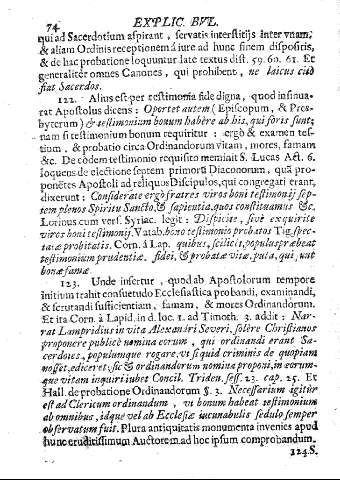 74 EXPLIC. BVL.
qui ad Sacerdotium aspirant, servatis interstitijs inter vnam,
& aliam Ordinis receptionem à iure ad hunc finem dispositis,
& de hac probatione loquuntur late textus dist. 59. 60. 61. Et
generaliter omnes Canones, qui prohibent, ne laicus citò
fiat Sacerdos.
122. Alius est per testimonia fide digna, quod insinua-
rat Apostolus dicens: Oportet autem (Episcopum, & Pres-
byterum) & testimonium bonum habère ab his, qui foris sunt;
nam si testimonium bonum requiritur: ergò & examen tes-
tium, & probatio circa Ordinandorum vitam, mores, famam
&c. De eodem testimonio requisito meminit S. Lucas Act. 6.
loquens de electione septem primorũ Diaconorum, quã pro-
ponẽtes Apostoli ad reliquos Discipulos, qui congregati erant,
dixerunt: Considerate ergò fratres viros boni testimonij sep-
tem plenos Spiritu Sancto, & sapientia, quos constituamus &c.
Lorinus cum vers. Syriac. legit: Dispicite, sivè exquirite
viros boni testimonij. Vatab. bono testimonio probatos Tig. spec-
tatæ probitatis. Corn. à Lap. quibus, scilicet, populus præbeat
testimonium prudentiæ, fidei, & probatæ vitæ, puta, qui sunt
bonæ famæ.
123. Unde insertur, quod ab Apostolorum tempore
initium trahit consuetudo Ecclesiastica probandi, examinandi,
& scrutandi sufficientiam, famam, & mores Ordinandorum.
Et ita Corn. à Lapid. in d. loc. 1. ad Timoth. 3. addit: Nar-
rat Lampridius in vita Alexandri Severi, solère Christianos
proponere publicè nomina eorum, qui ordinandi erant Sa-
cerdotes, populumque rogare, vt si quid criminis de quopiam
nosset, ediceret; sic & ordinandorum nomina proponi, in eorum-
que vitam inquiri iubet Concil. Triden. sess. 23. cap. 25. Et
Hall. de probatione Ordinandorum §. 3. Necessarium igitùr
est ad Clericum ordinandum, vt bonum habeat testimonium
ab omnibus, idque vel ab Ecclesiæ iucunabulis sedulo semper
observatum fuit. Plura antiquitatis monumenta invenies apud
hunc eruditissimum Auctorem ad hoc ipsum comprobandum.
124. S.